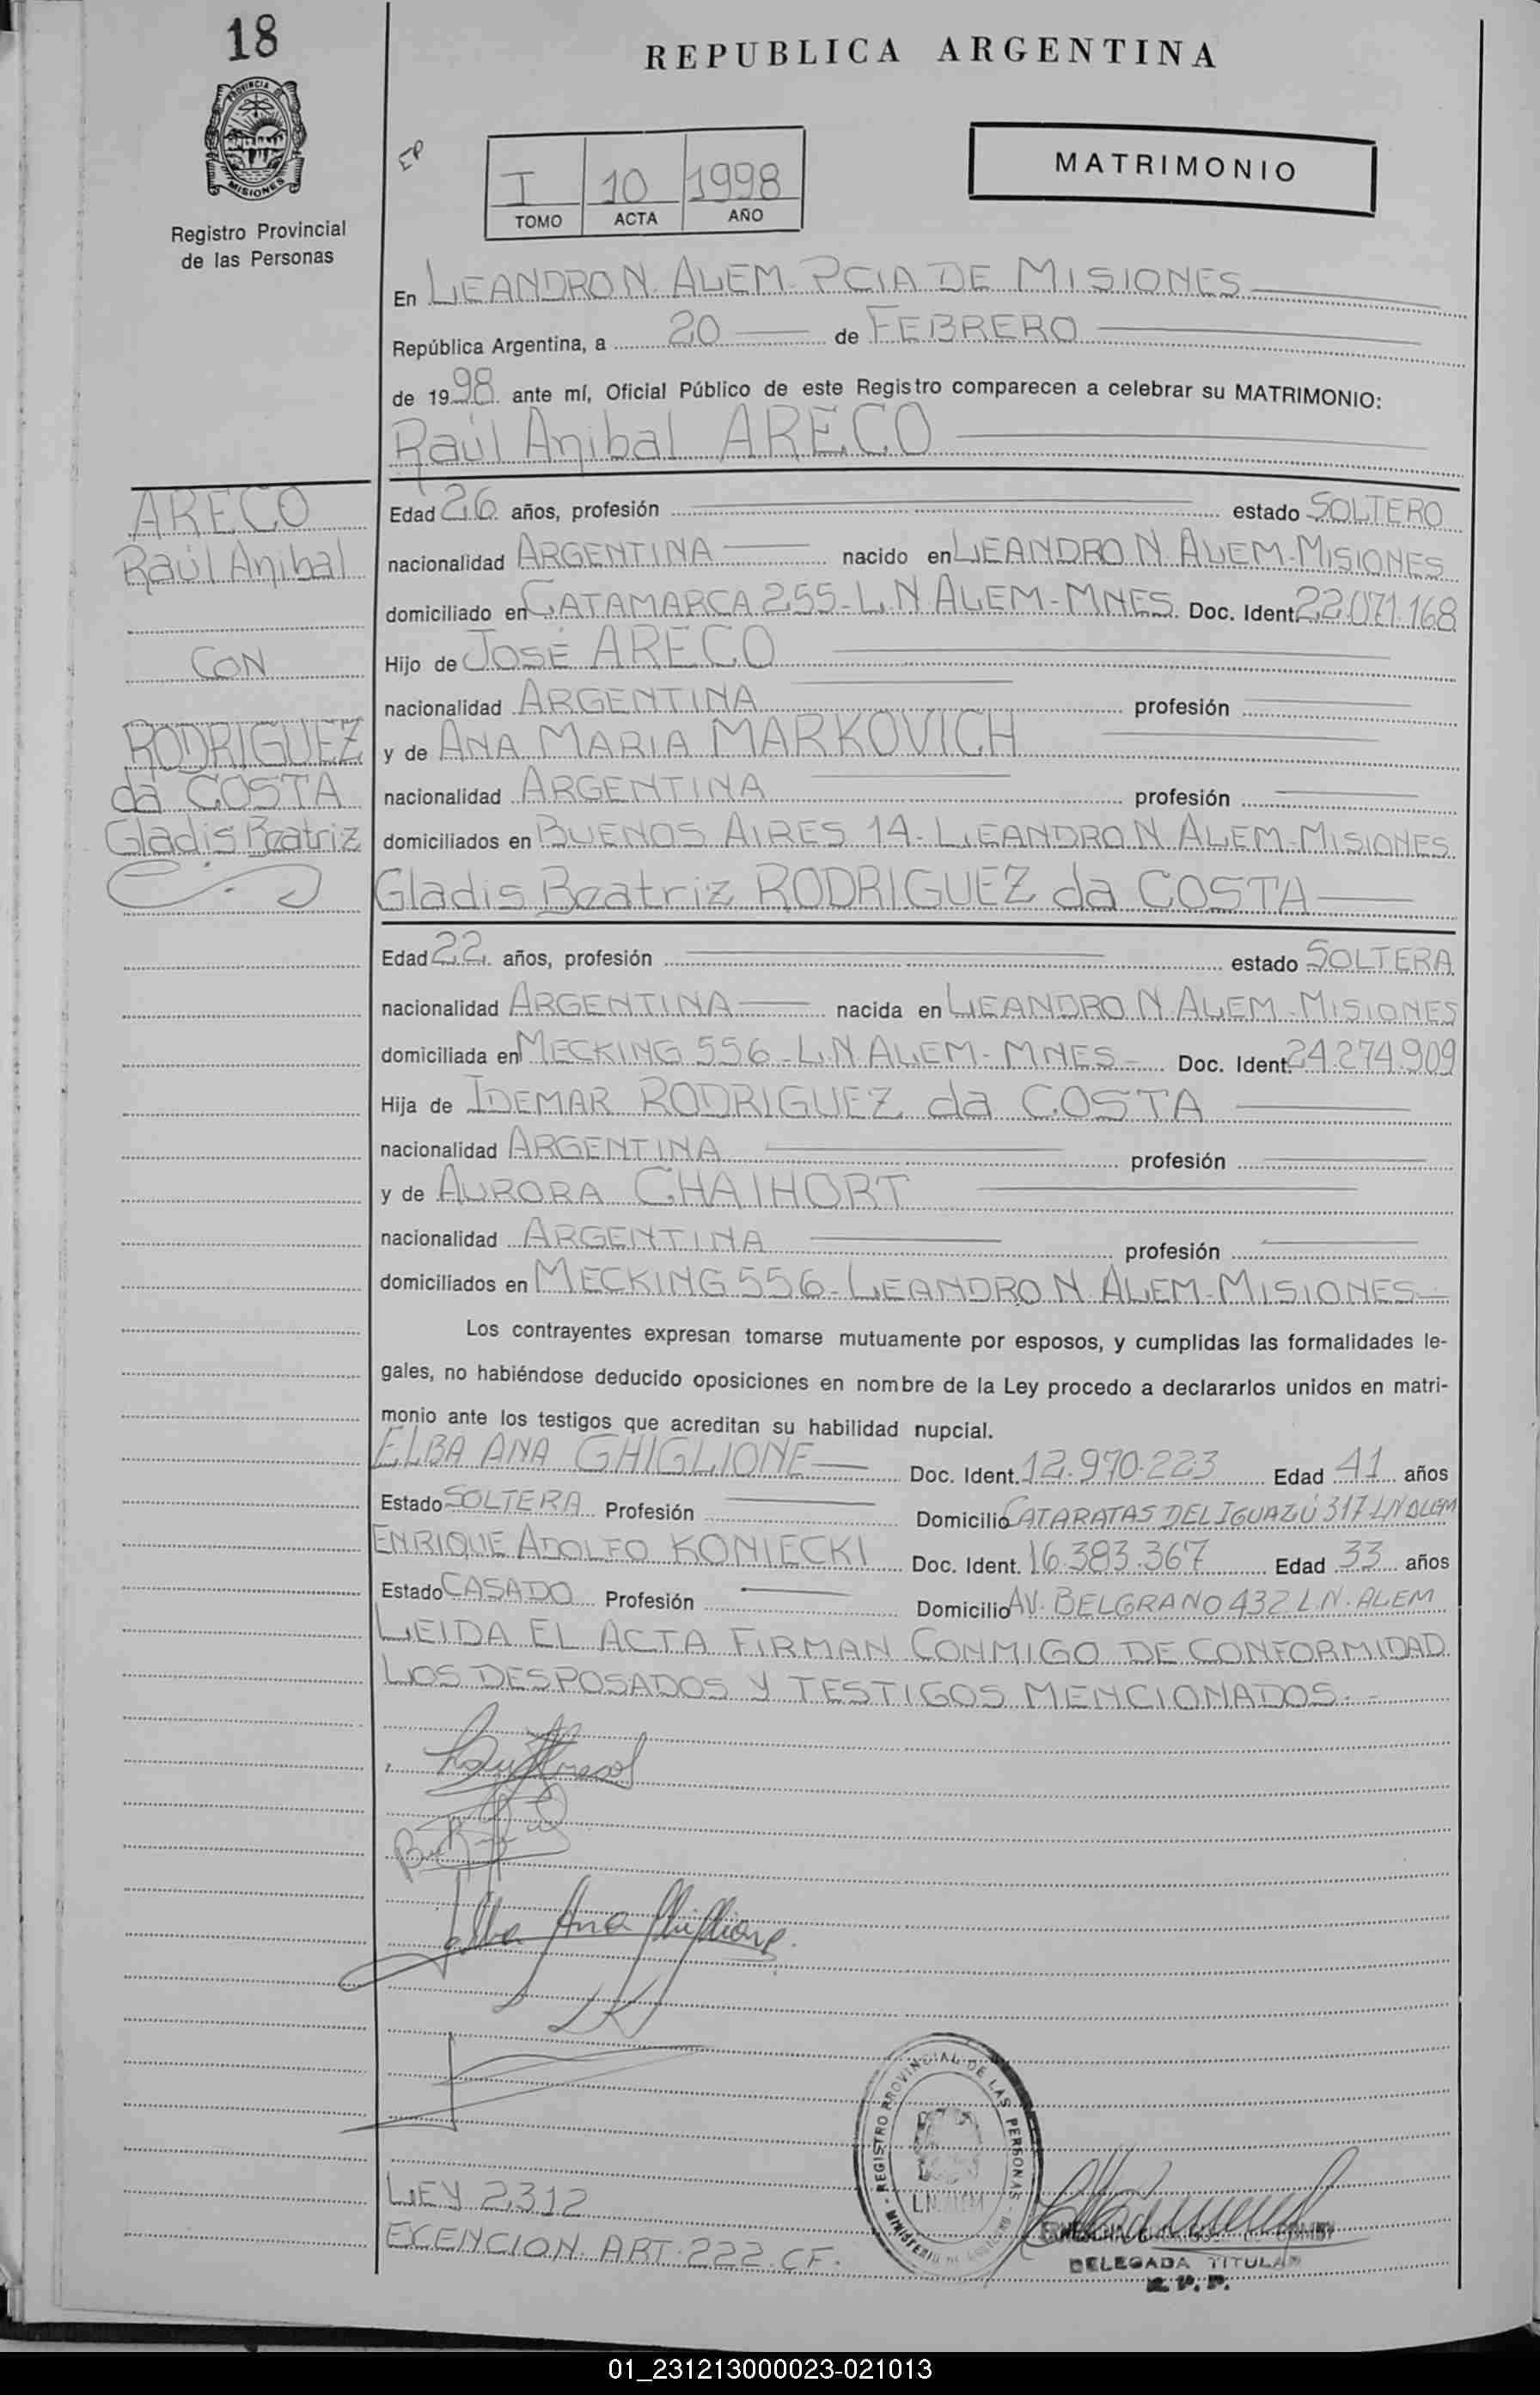 18
REPUBLICA ARGENTINA
PROVINCIA DE
MISIONES
Registro Provincial
de las Personas
EP
I 10 1998
TOMO ACTA AÑO
MATRIMONIO
En LEANDRO N. ALEM-PCIA DE MISIONES
República Argentina, a 20 de FEBRERO
de 1998 ante mí, Oficial Público de este Registro comparecen a celebrar su MATRIMONIO:
Raúl Anibal ARECO
ARECO
Raúl Anibal
CON
RODRIGUEZ
da COSTA
Gladis Beatriz
Edad 26 años, profesión estado SOLTERO
nacionalidad ARGENTINA nacido en LEANDRO N. ALEM-MISIONES
domiciliado en CATAMARCA 255-L.N ALEM-MNES. Doc. Ident. 22.071.168
Hijo de JOSÉ ARECO
nacionalidad ARGENTINA profesión
y de ANA MARIA MARKOVICH
nacionalidad ARGENTINA profesión
domiciliados en BUENOS AIRES 14-LEANDRO N. ALEM-MISIONES
Gladis Beatriz RODRIGUEZ da COSTA
Edad 22 años, profesión estado SOLTERA
nacionalidad ARGENTINA nacida en LEANDRO N. ALEM-MISIONES
domiciliada en MECKING 556-L.N.ALEM-MNES- Doc. Ident. 24.274.909
Hija de IDEMAR RODRIGUEZ da COSTA
nacionalidad ARGENTINA profesión
y de AURORA CHAIHORT
nacionalidad ARGENTINA profesión
domiciliados en MECKING 556-LEANDRO N. ALEM-MISIONES
Los contrayentes expresan tomarse mutuamente por esposos, y cumplidas las formalidades le-
gales, no habiéndose deducido oposiciones en nombre de la Ley procedo a declararlos unidos en matri-
monio ante los testigos que acreditan su habilidad nupcial.
ELBA ANA GHIGLIONE Doc. Ident. 12.970.223 Edad 41 años
Estado SOLTERA Profesión Domicilio CATARATAS DEL IGUAZÚ 317 LN ALEM
ENRIQUE ADOLFO KONIECKI Doc. Ident. 16.383.367 Edad 33 años
Estado CASADO Profesión Domicilio AV. BELGRANO 432 L.N. ALEM
LEIDA EL ACTA FIRMAN CONMIGO DE CONFORMIDAD
LOS DESPOSADOS Y TESTIGOS MENCIONADOS.-
Elba Ana Ghiglione
REGISTRO PROVINCIAL DE LAS PERSONAS
MINISTERIO DE GOBIERNO
L.N. ALEM
LEY 2312
EXENCION. ART. 222. CF.
DELEGADA TITULAR
R. P. P.
01_231213000023-021013